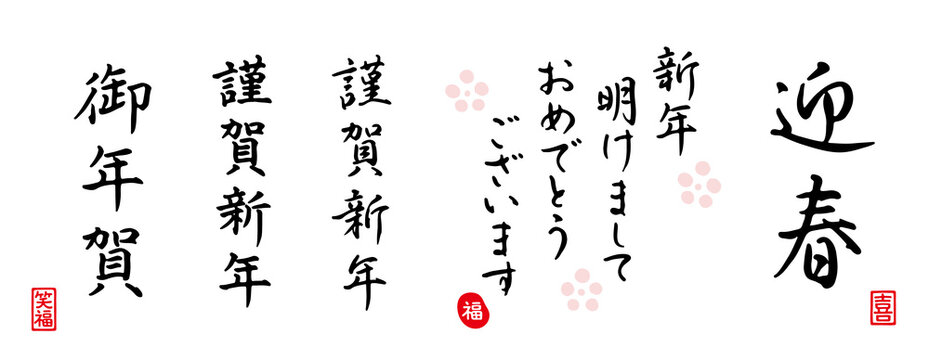 迎春
喜
新年
明けまして
おめでとう
ございます
福
謹賀新年
謹賀新年
御年賀
笑福